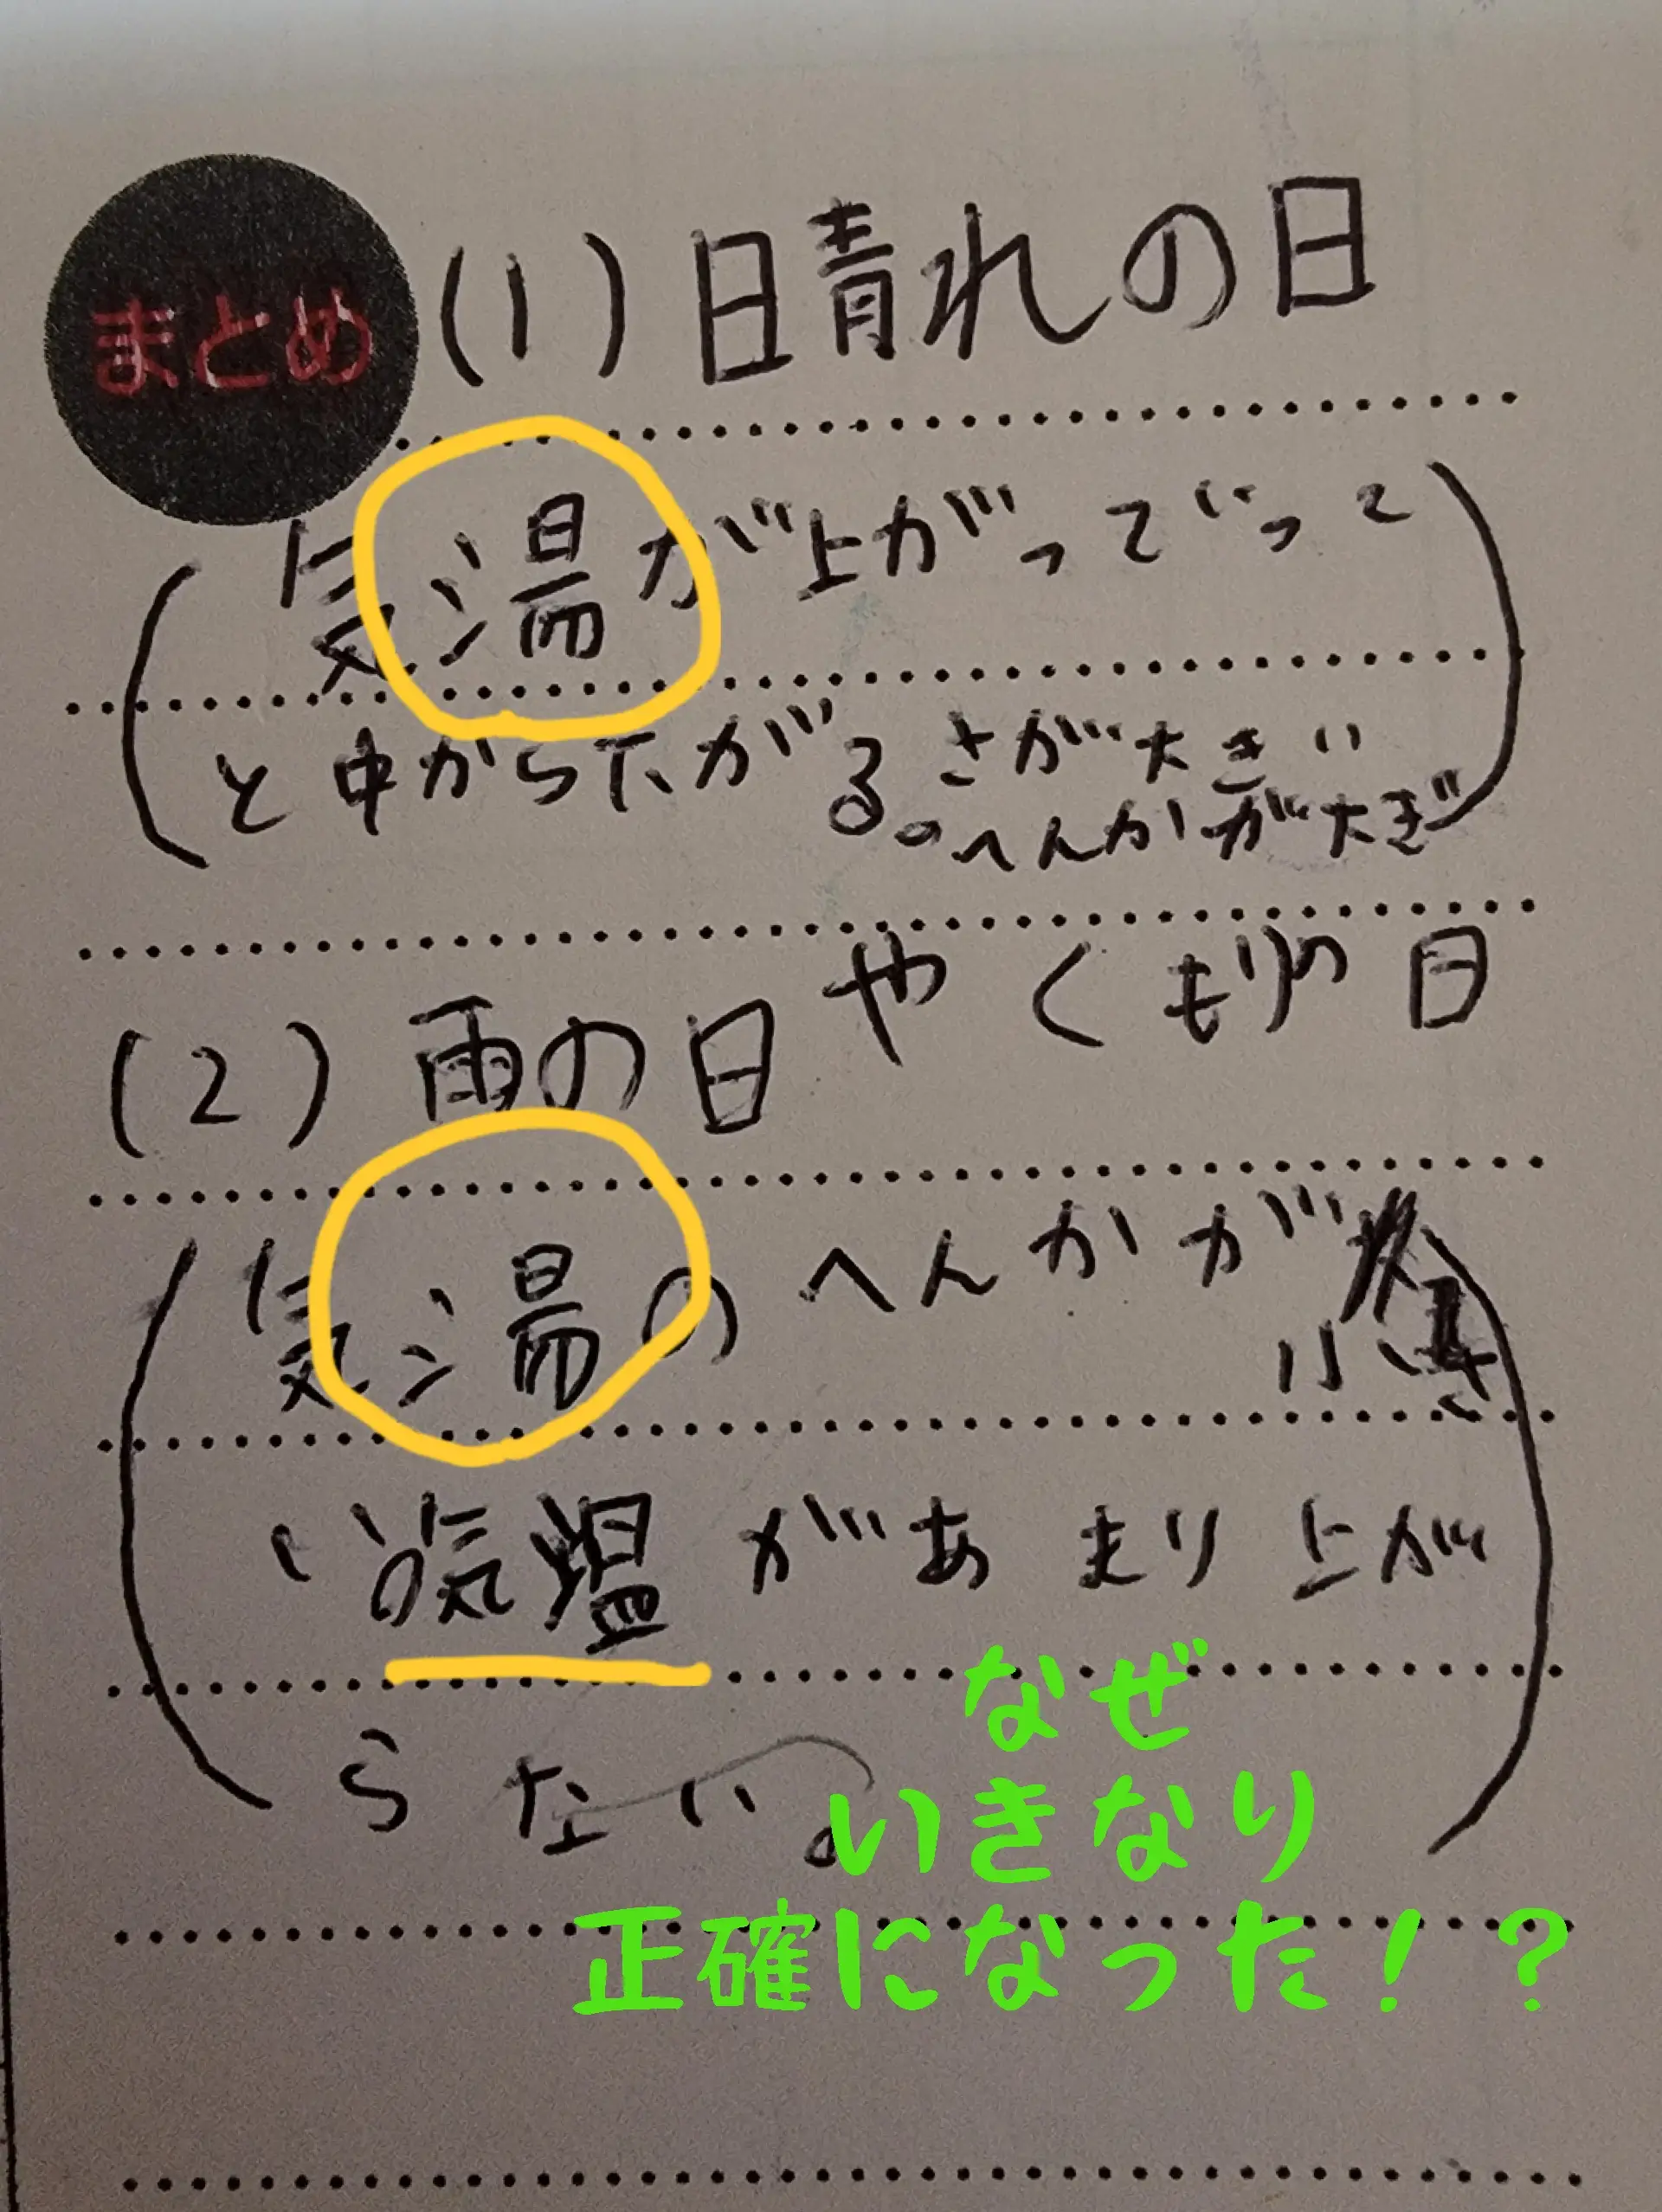 まとめ
(1)日晴れの日
気湯が上がっていって
と中から下がる。さがが大きい
のへんかが大き
(2)雨の日やくもりの日
気湯のへんかが
小さ
い 気温があまり上が
らない。
なぜ
いきなり
正確になった!?